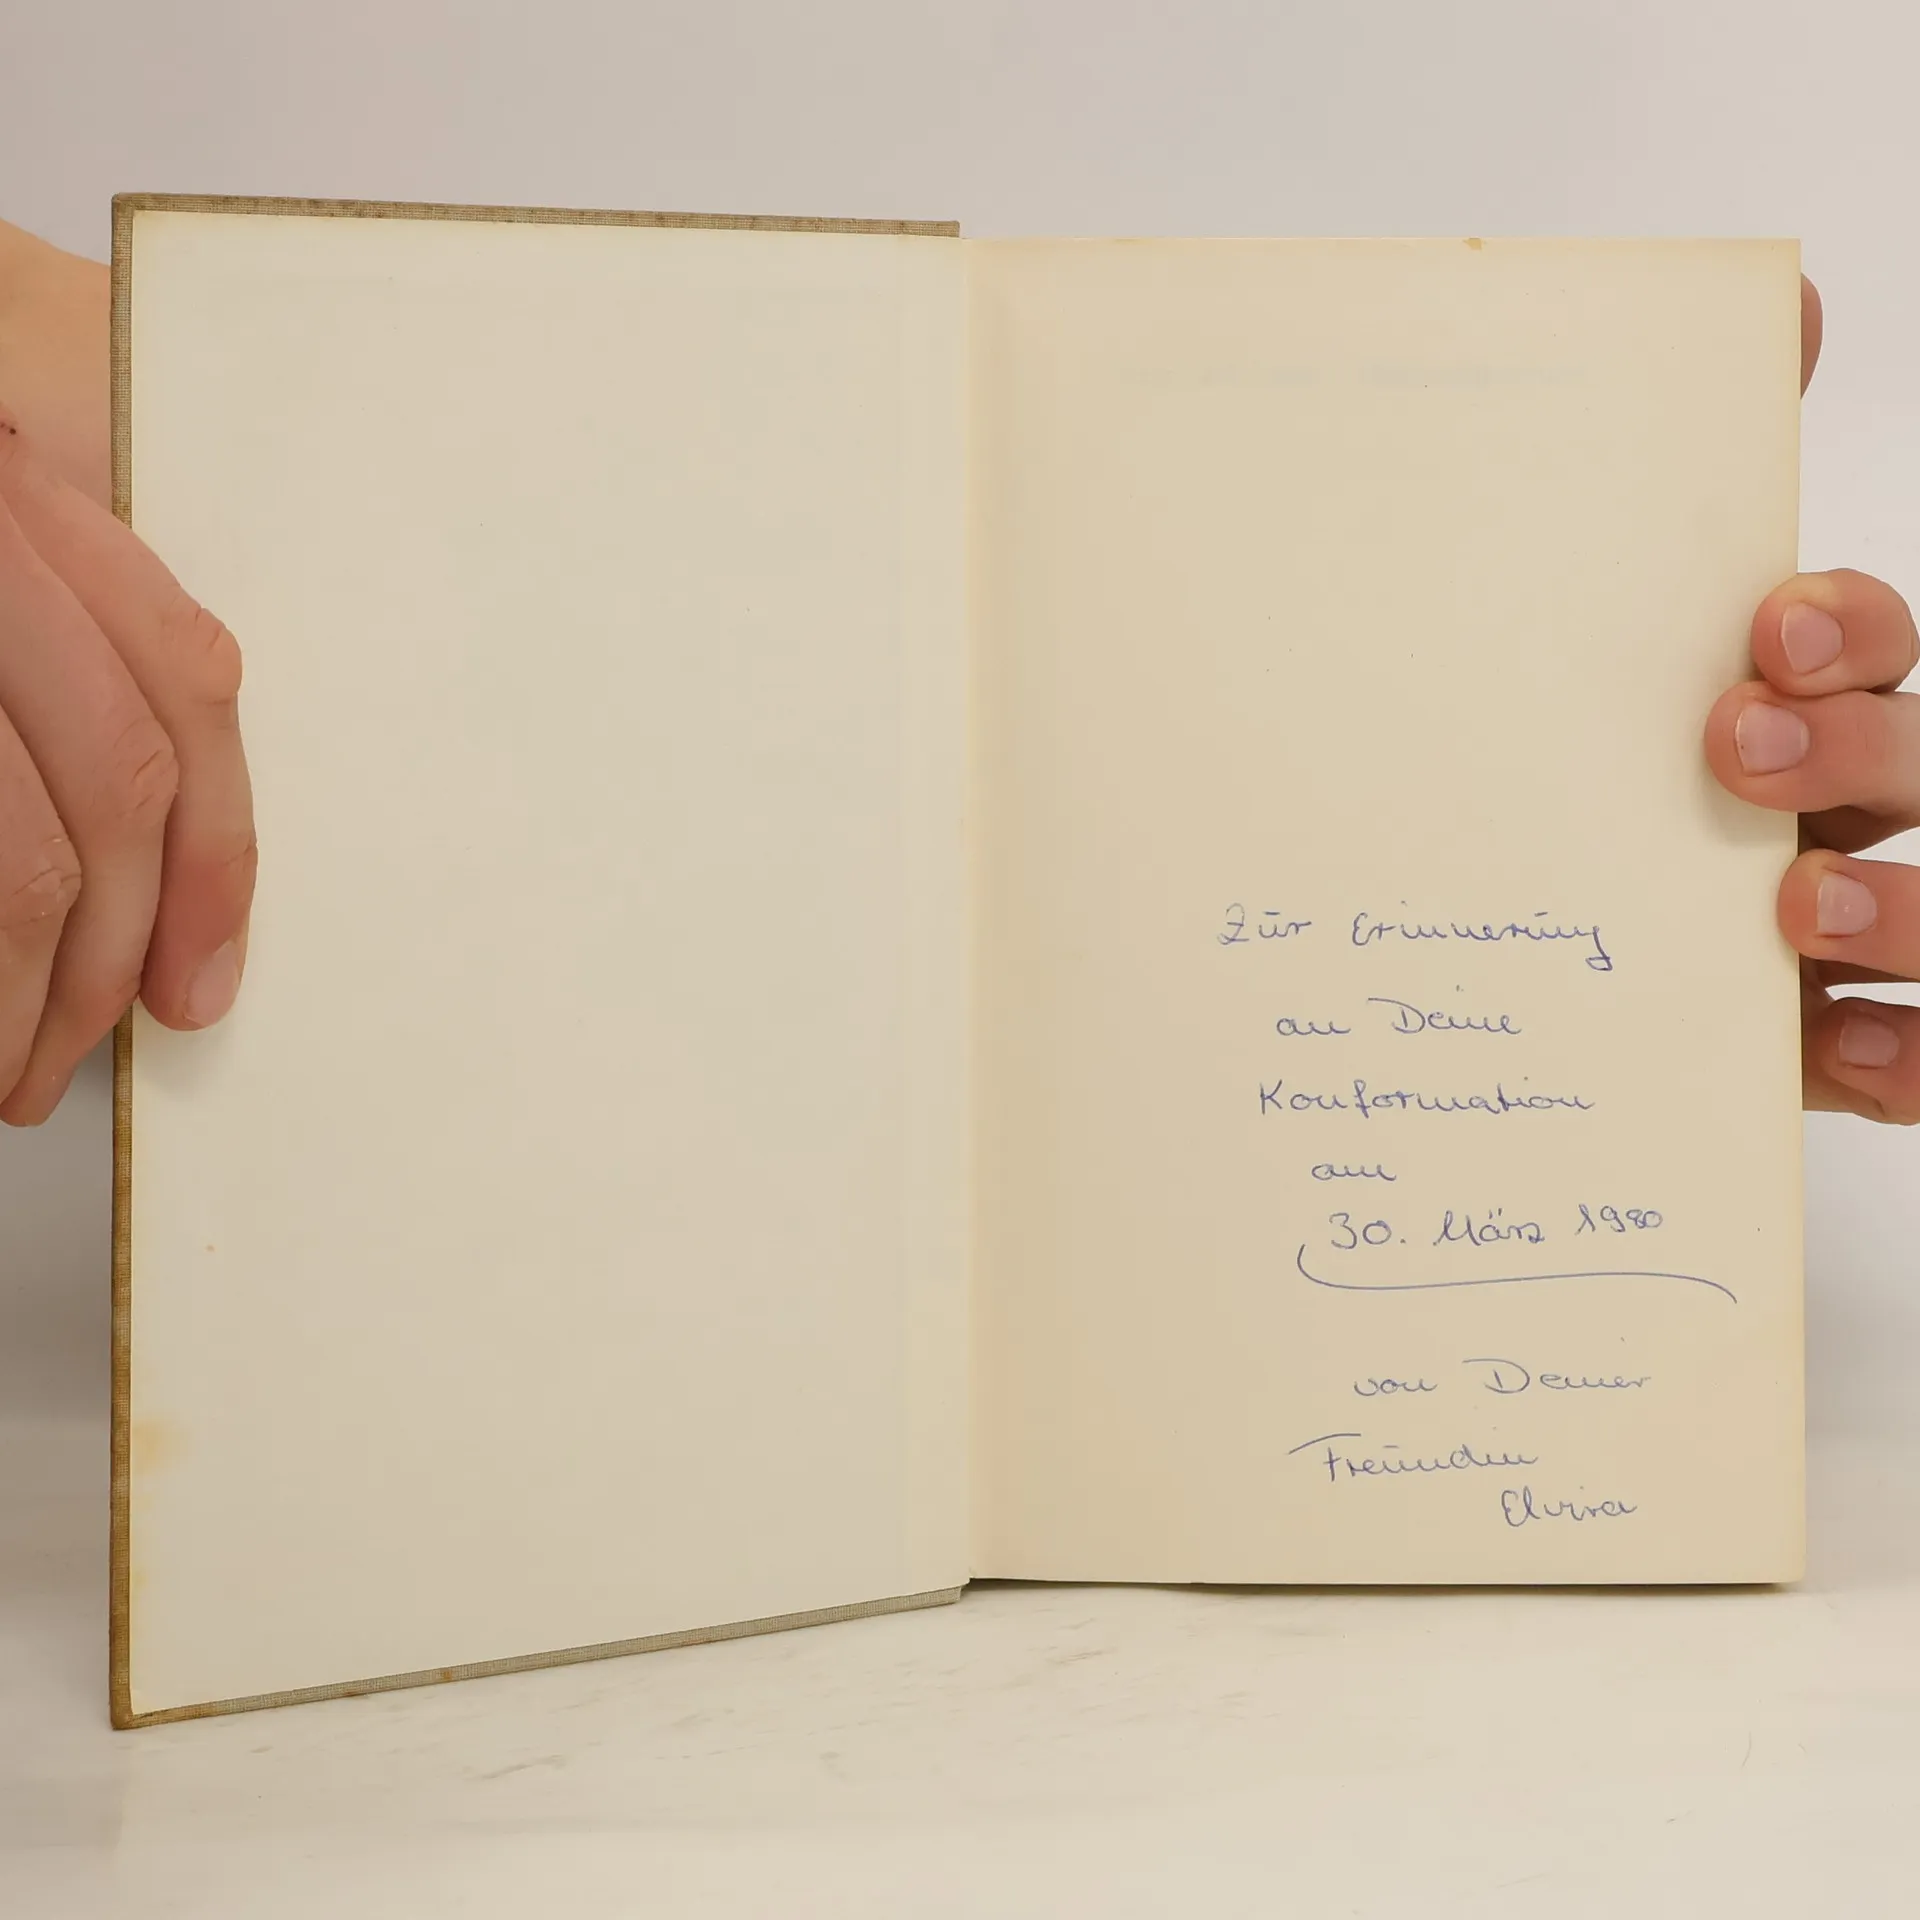 Zur Erinnerung
an Deine
Konformation
am
30. März 1980
von Deiner
Freundin
Elvira